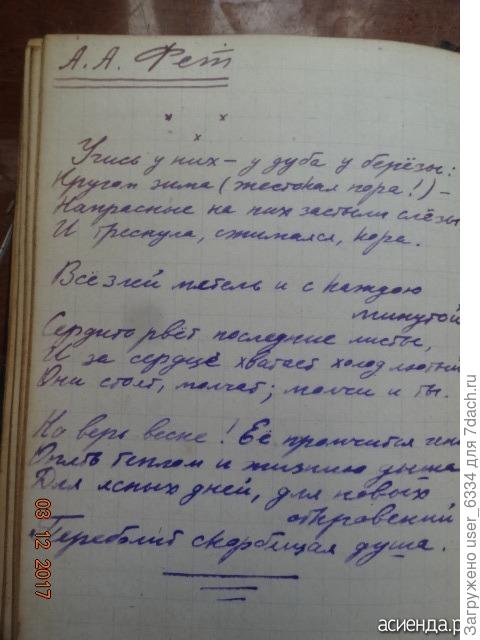 А. А. Фет
* *
*
Учись у них – у дуба у берёзы:
Кругом зима (жестокая пора!) –
Напрасные на них застыли слёзы
И треснула, сжимаяся, кора.
Всё злей мятель и с каждою
минутой
Сердито рвёт последние листы,
И за сердце хватает холод лютый
Они стоят, молчат; молчи и ты.
Но верь весне! Её промчится ген
Опять теплом и жизнию дыша
Для ясных дней, для новых
откровений
Переболит скорбящая душа.
03 12 2017
асиенда.р
Загружено user_6334 для 7dach.ru